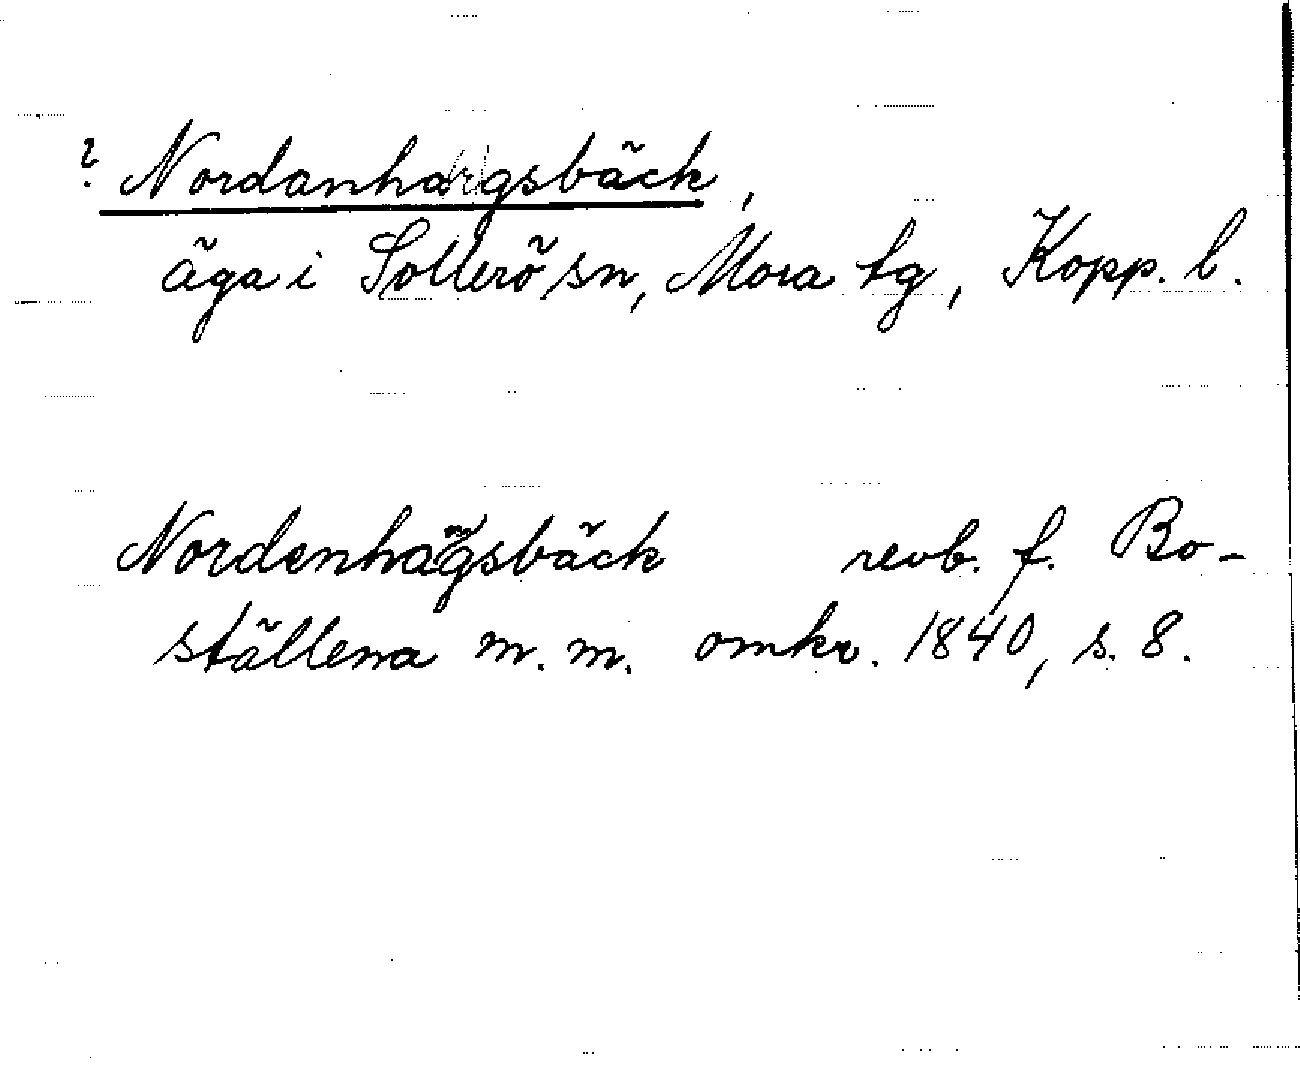 ? Nordanhargsbäck,
äga i Sollerö sn, Mora tg, Kopp. l.
Nordenhagsbäck revb. f. Bo-
ställena m. m. omkr. 1840, s. 8.